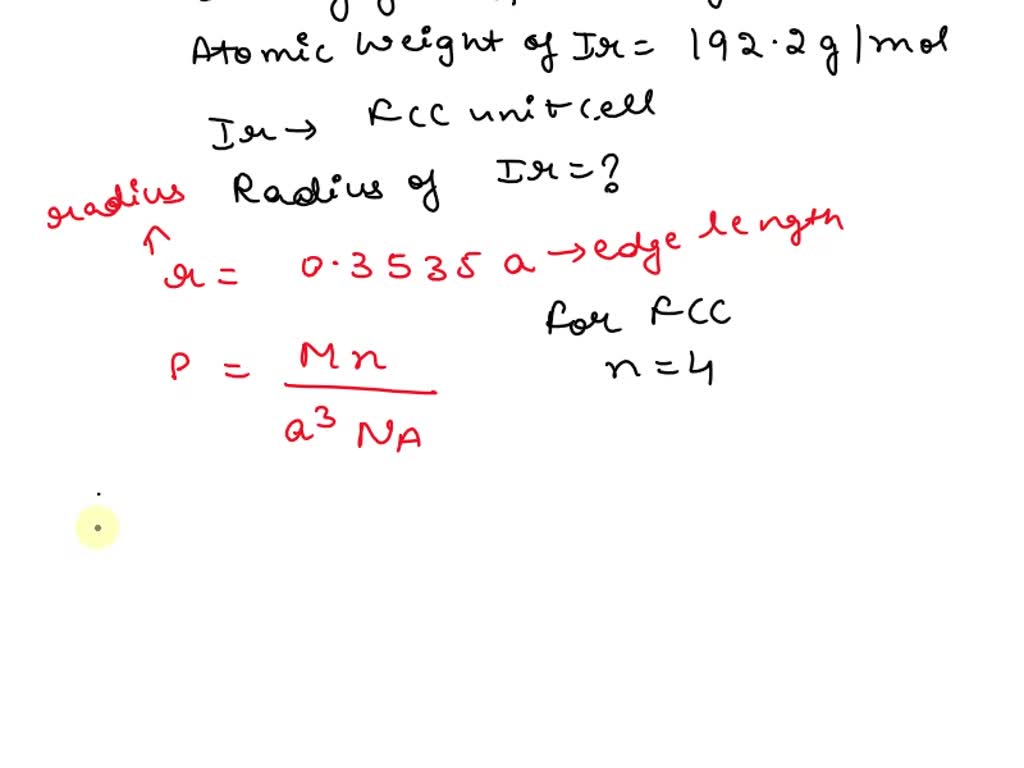 Atomic weight of Ir = 192.2 g/mol
Ir → FCC unit cell
radius Radius of Ir = ?
r = 0.3535 a → edge length
for FCC
P = Mn / a³ NA
n = 4